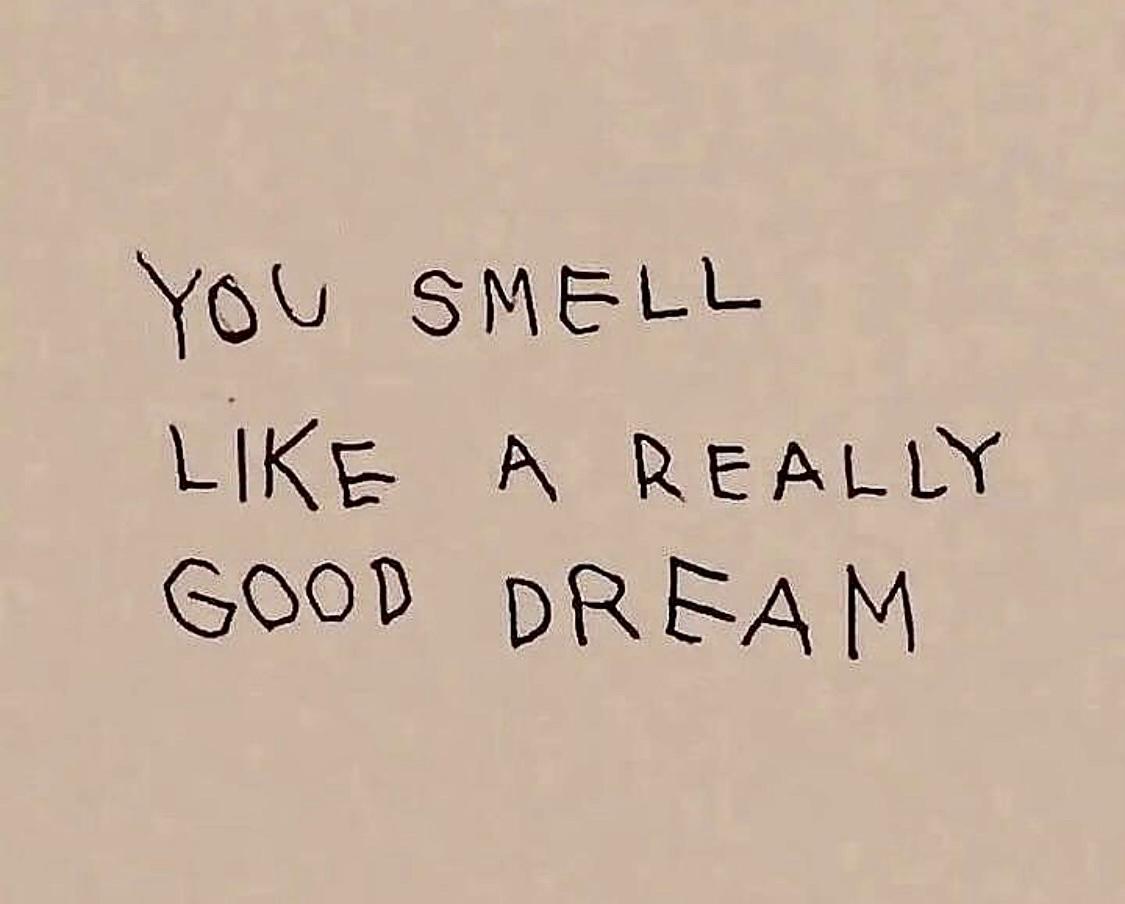 YOU SMELL
LIKE A REALLY
GOOD DREAM